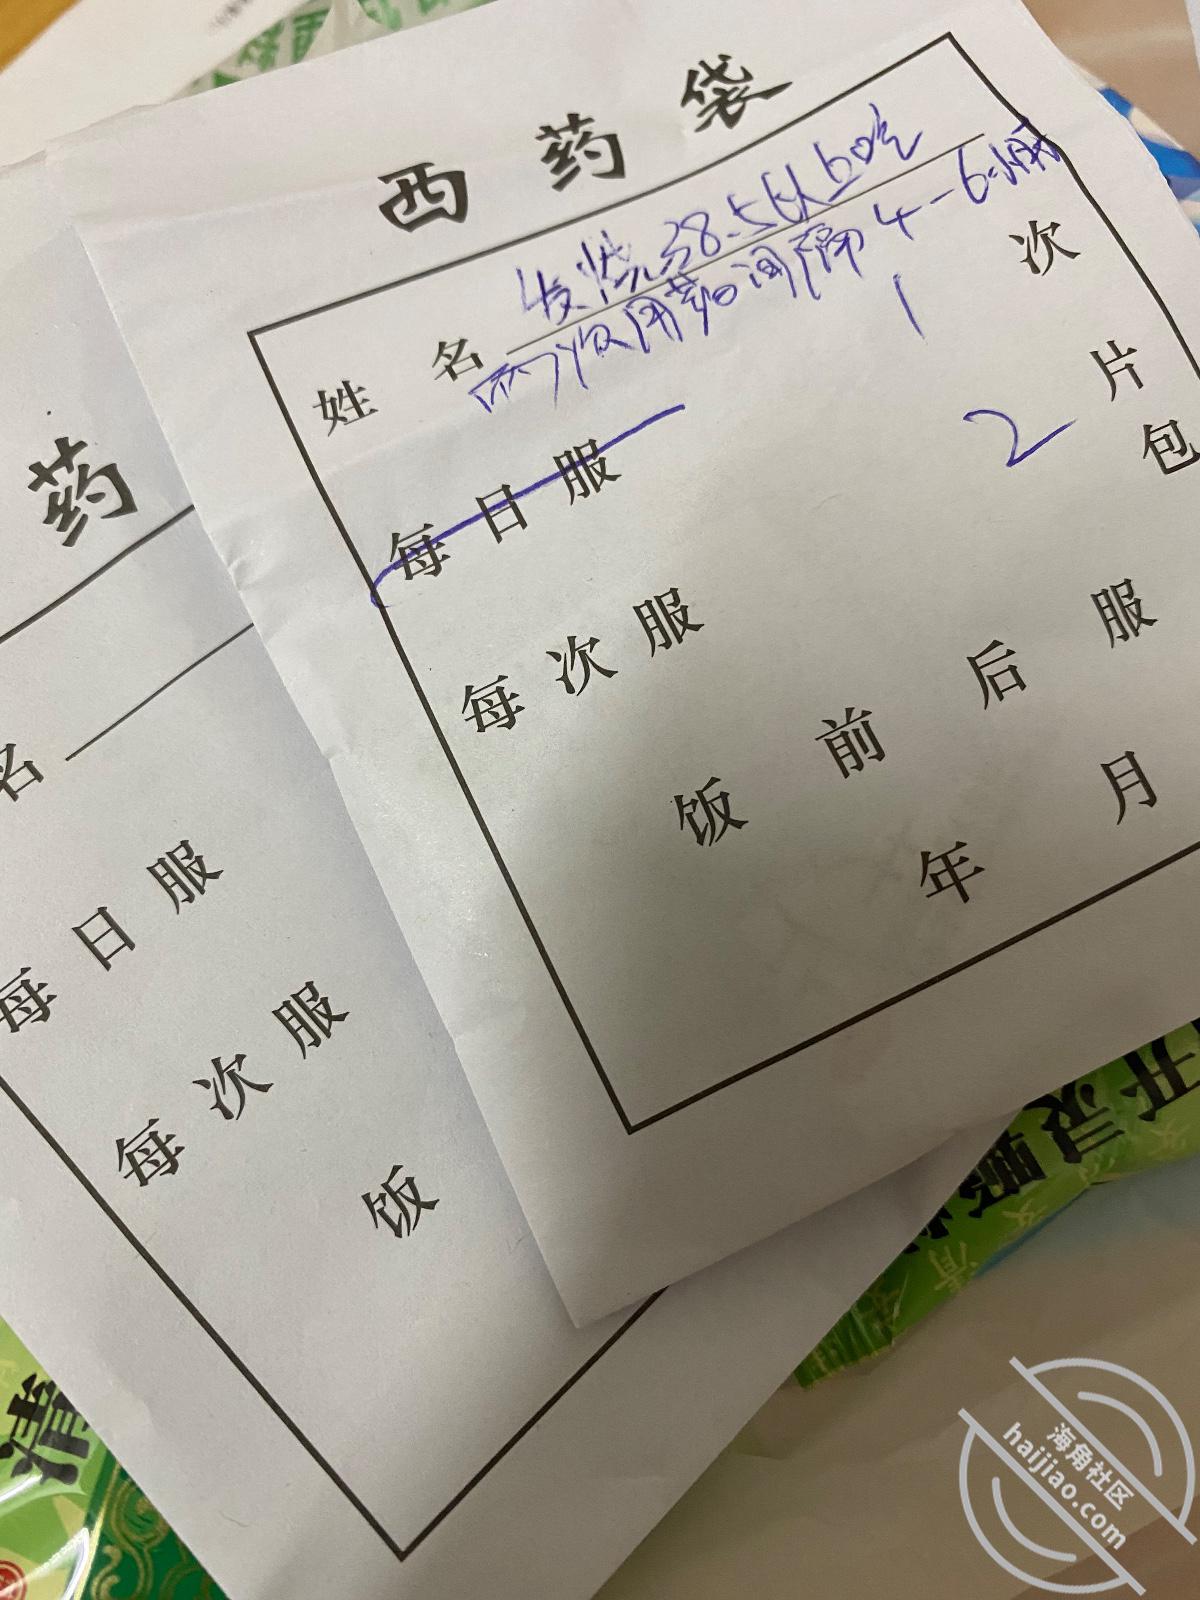 西药袋
发烧38.5以上吃
姓名
两次用药间隔4-6小时
每日服 1 次
每次服 2 片
包
饭前后服
年月
药
名
每日服
每次服
饭
清
清
海角社区
haijiao.com